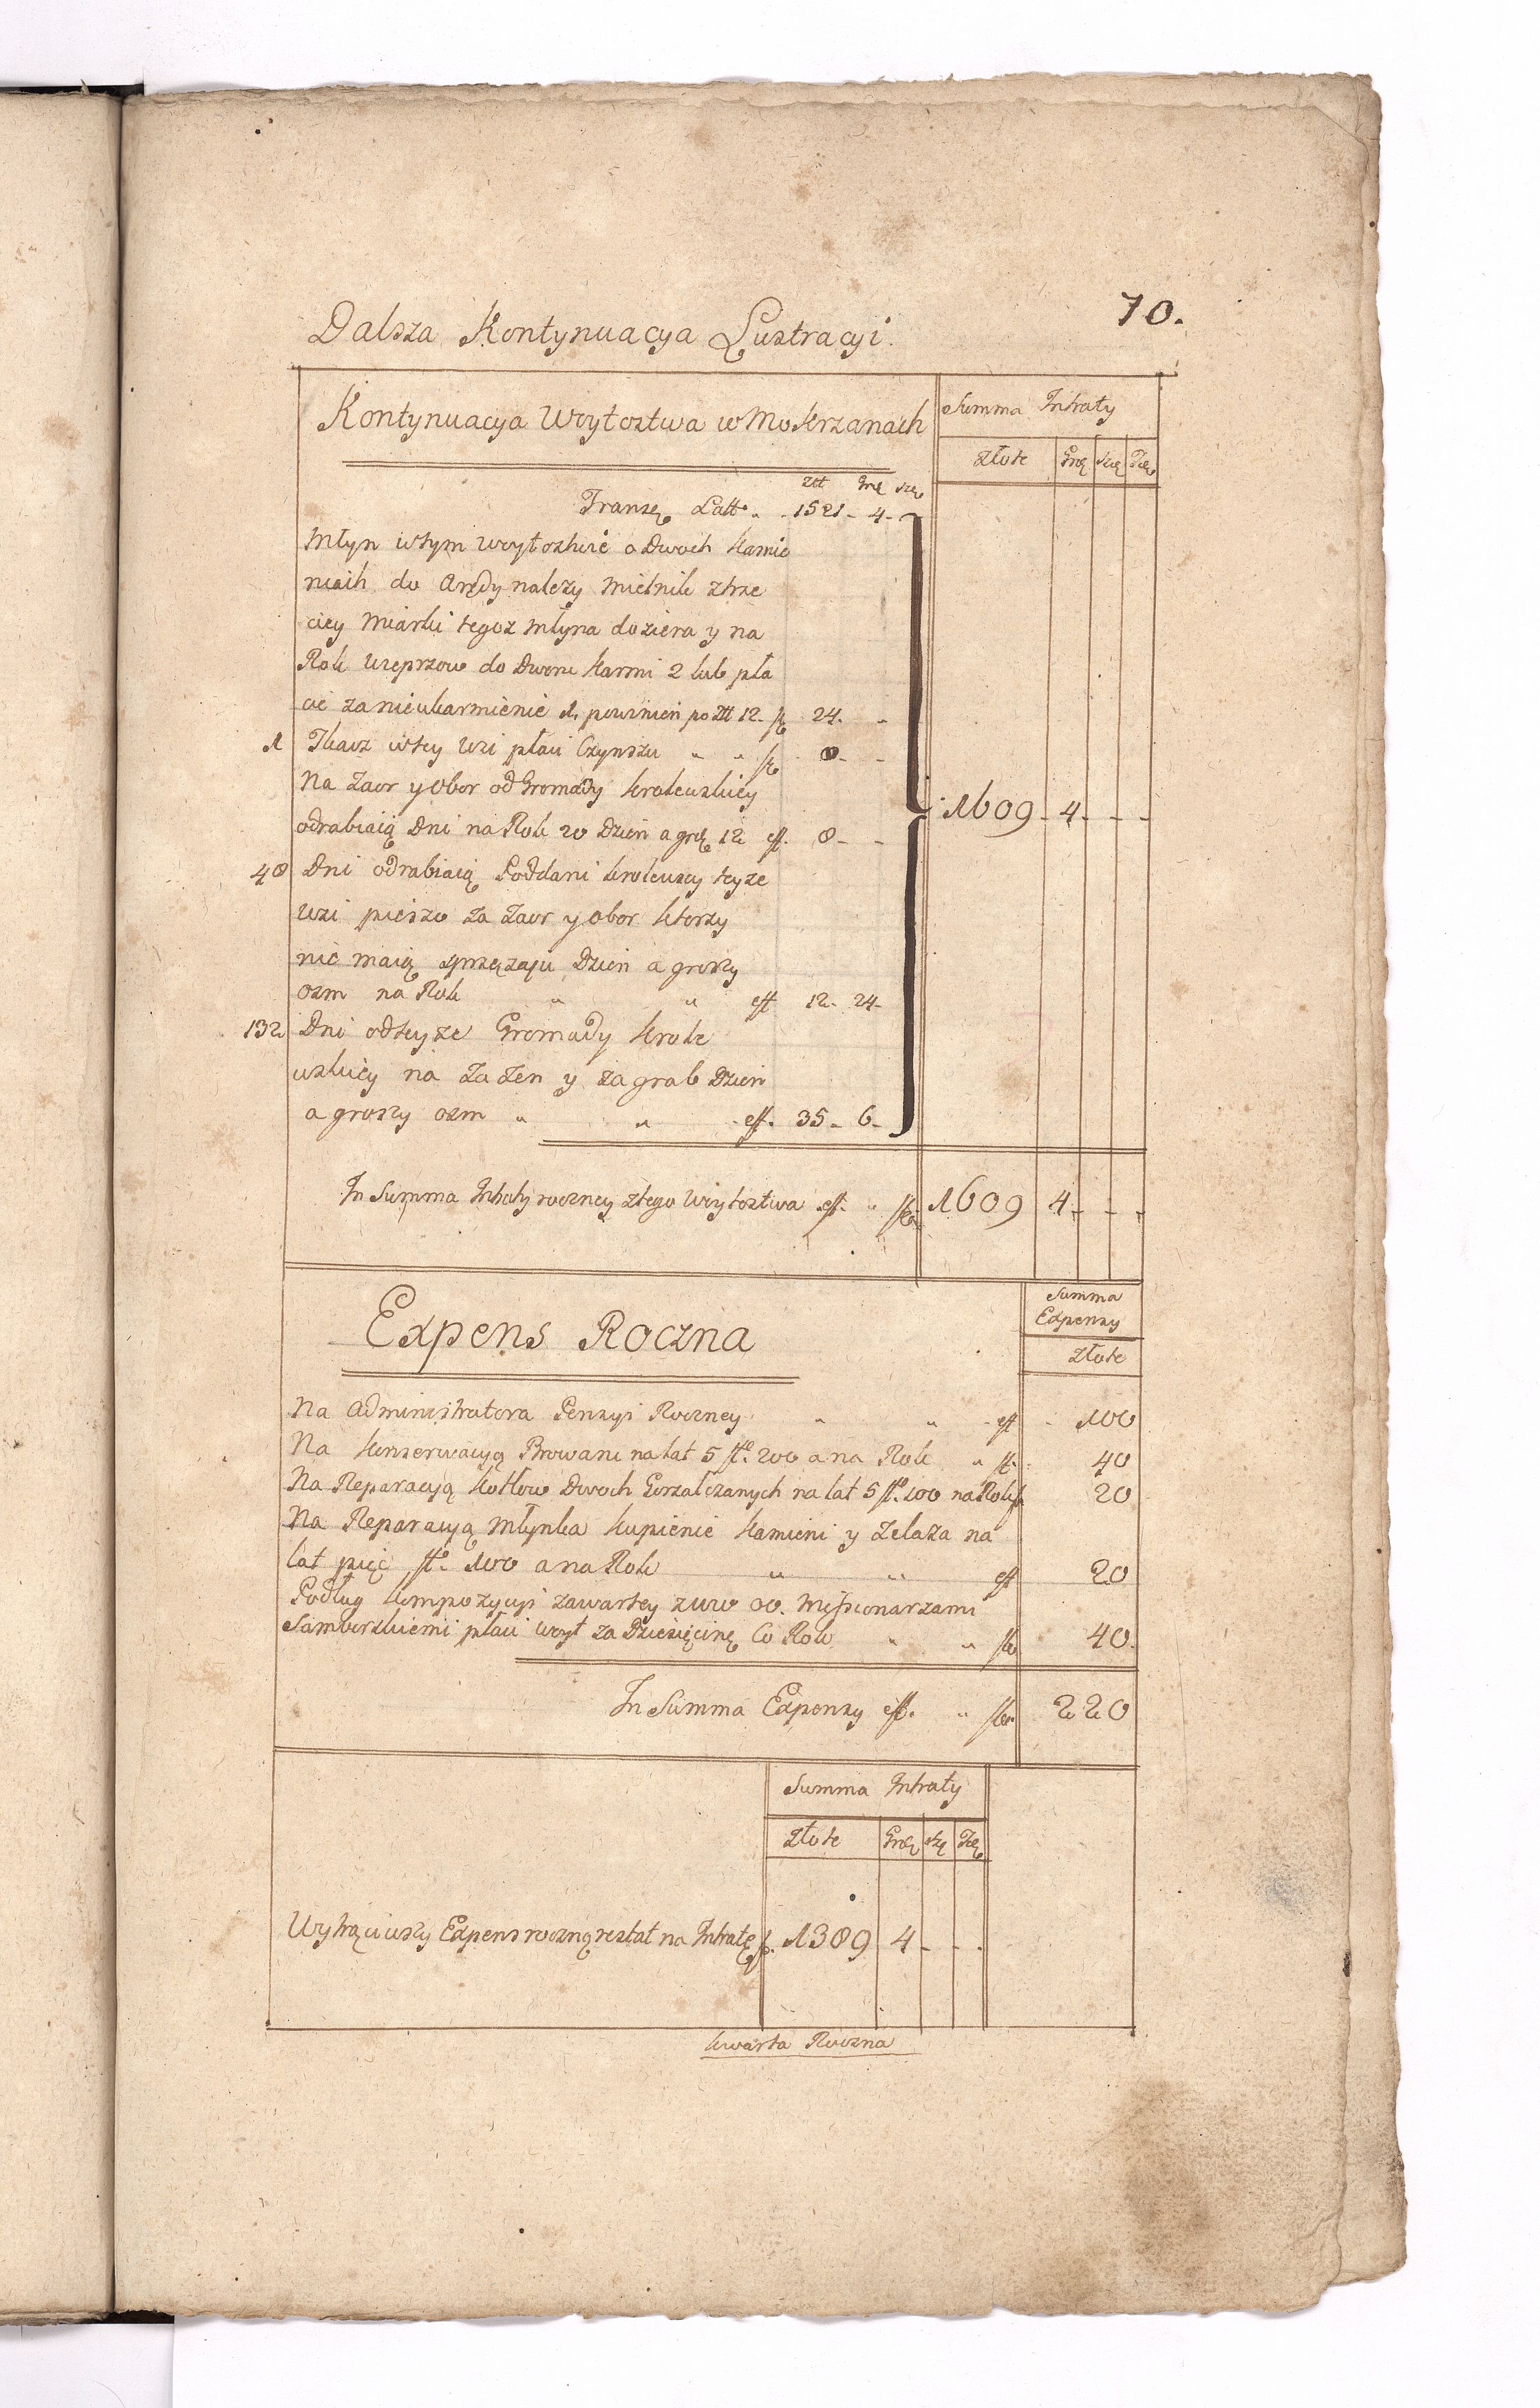 70.
Dalsza Kontynuacya Lustracyi.
Kontynuacya Woytostwa w Mokrzanach
Summa Intraty
Złote Groę Szeę
Ztt Groę Szę
Transę Latt " - 1521 - 4 -
Młyn wtym Woytostwie o Dwoch Kamie
niach do Arędy nalezy Mielnik ztrze
ciey Miarki tegoz Młyna doziera y na
Rok Wieprzow do Dworu karmi 2 lub pła
cić zanieukarmienie powinien po Ztt 12. 24. "
1 Tkacz wtey Wsi płaci Czynszu " " 8 - -
Na Zaor y Obor od Gromady Krolewskiey
odrabiaią Dni na Rok 20 Dzień a groę 12 eff. 8 - -
48 Dni odrabiaią Poddani Krolewscy teyze
Wsi pieszo za Zaor y Obor ktorzy
nie maią sprzęzaju Dzień a groszy
osm na Rok " " eff 12 - 24 -
132 Dni odteyze Gromady Krole
wskiey na Zazen y zagrab Dzień
a groszy osm " " eff. 35 - 6 -
1609 - 4 - - -
In Summa Intraty roczney ztego Woytostwa eff. " 1609 4 - - -
Expens Roczna
Summa
Expensy
Złote
Na Administratora Pensyi Roczney " " eff - 100
Na Konserwacyą Browaru na lat 5 200 a na Rok " 40
Na Reparacyą Kotłow Dwoch Gorzalczanych na lat 5 100 na Rok 20
Na Reparacyą Młynka kupienie Kamieni y Zelaza na
lat pięć 100 a na Rok " " eff 20
Podług Kompozycyi zawartey z OO. Missionarzami
Samborskiemi płaci Woyt za Dziesięcinę Co Rok " " 40.
In Summa Expensy eff. " 220
Summa Intraty
Złote Groę Szę
Wytrąciwszy Expens roczną restat na Intratę 1389 4 - - -
Kwarta Roczna